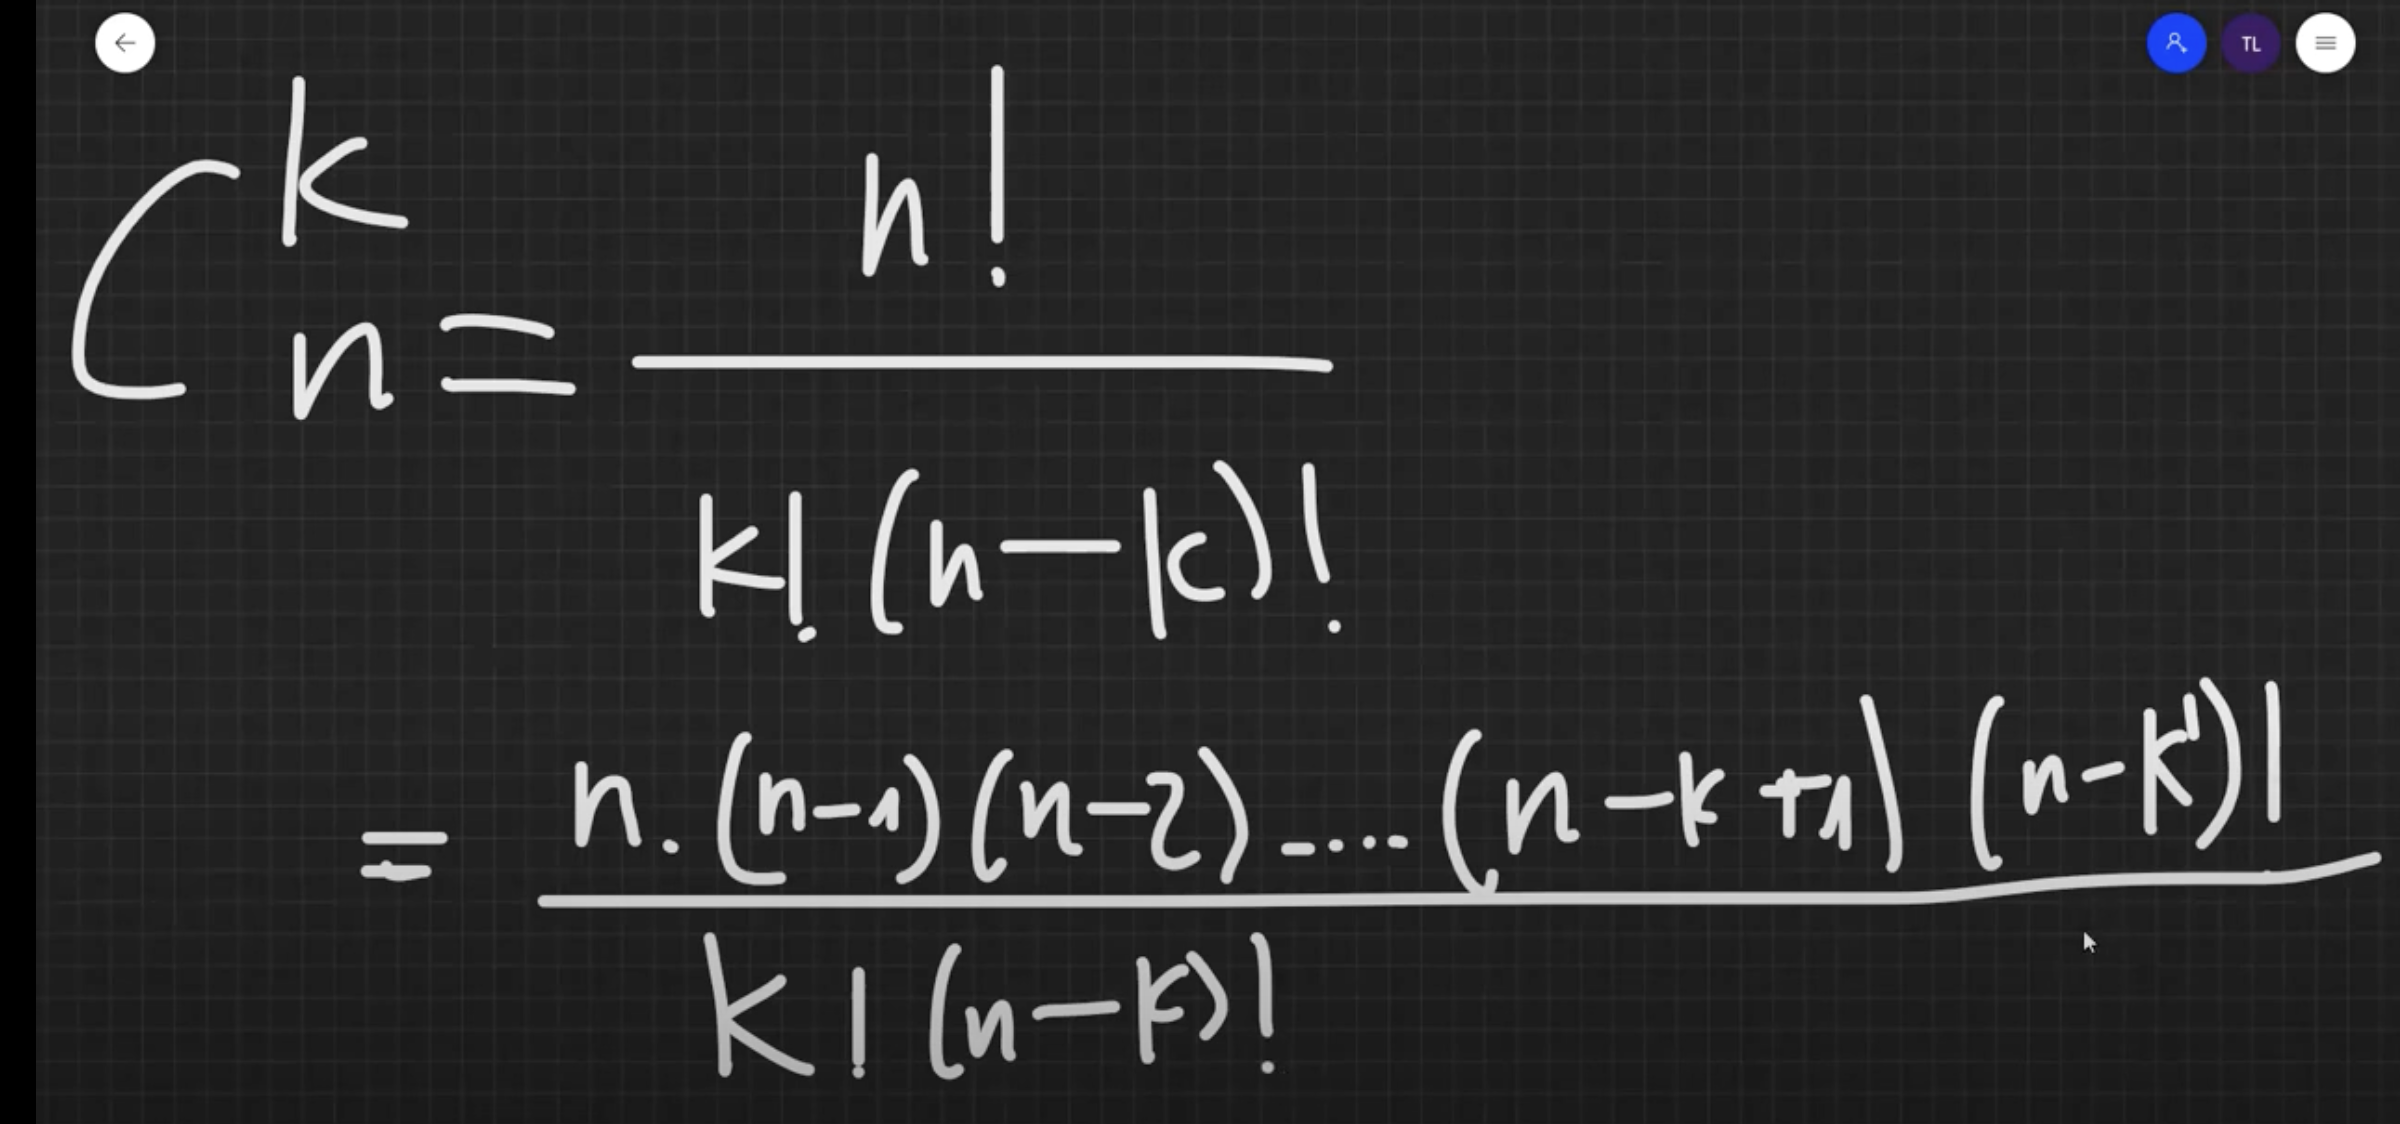 TL
C_n^k = n! / k! (n-k)!
= n.(n-1)(n-2)-....(n-k+1)(n-k)! / k! (n-k)!